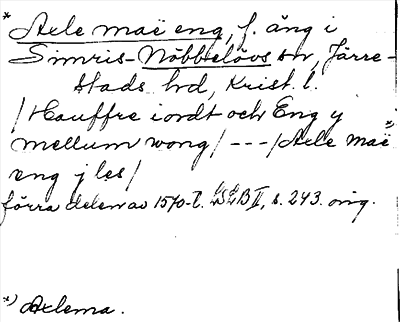 * Axle maë eng, f. äng i
Simris-Nöbbelövs sn, Järre-
stads hd, Krist. l.
/Hauffre iordt och Eng y
mellum wong/ ---/Axle maë *)
eng j les/
förra delen av 1570-t. LSLB II, s. 243. orig.
*) Axlema.